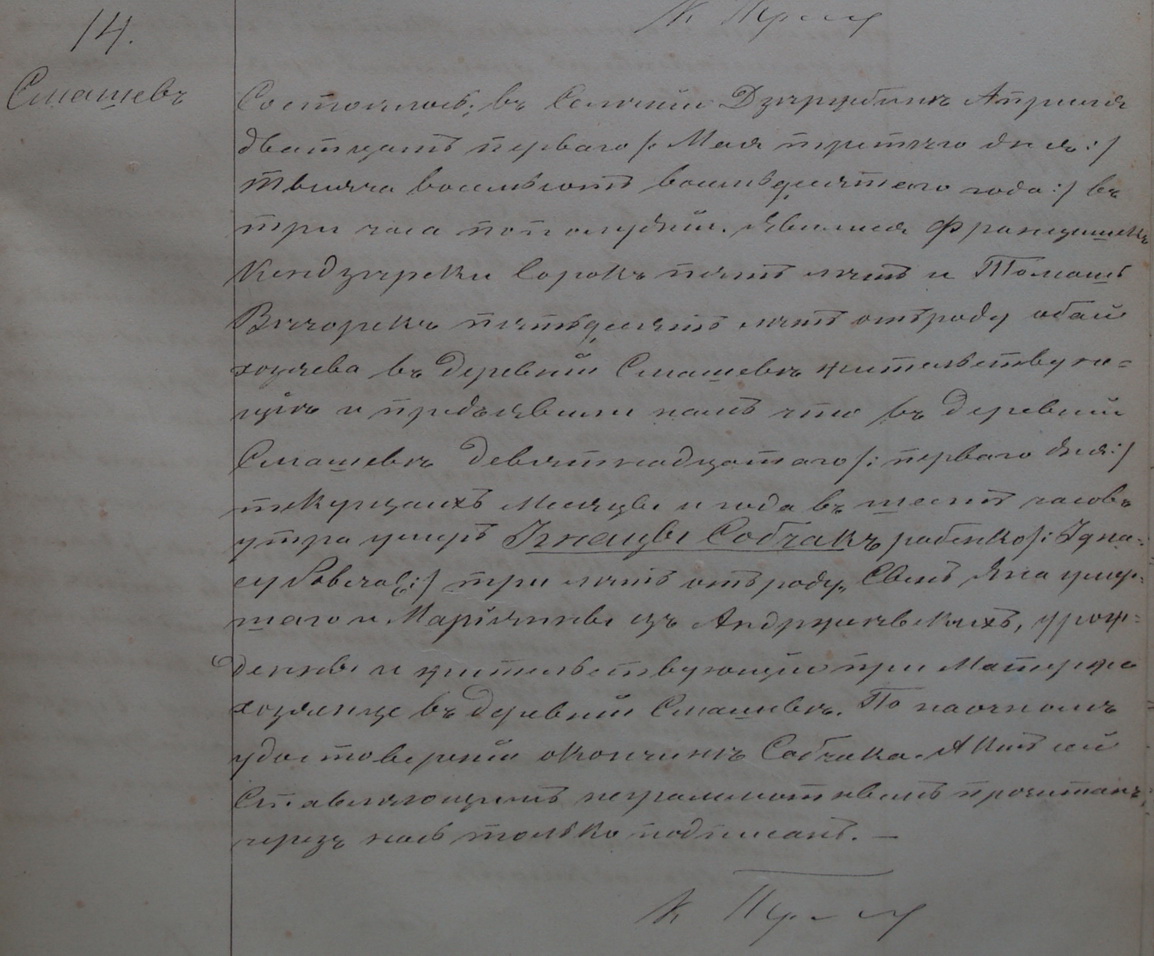 14.
Смашевъ
Состоялось въ Селеніи Дзержбинъ Апреля
двадцать перваго /: Мая третяго дня :/
тысяча восемьсотъ восемьдесятаго года :/ въ
три часа пополудни. Явился Францишекъ
Кендзерски сорокъ пять лѣтъ и Томашъ
Вечорекъ пятьдесятъ лѣтъ отъ роду обаи
хозяева въ деревни Смашевъ жительствую=
щіе и предъявили намъ что въ деревни
Смашевъ девятнадцатаго /: перваго дня :/
текущихъ Месяца и года въ шесть часовъ
утра умеръ Игнацы Собчакъ ребенко /: Igna=
cy Sobczak :/ три лѣтъ отъ роду, Сынъ Яна умер=
шаго и Маріянны изъ Андржеевскихъ, урож=
денны и жительствующій при Матерже
хозяйнце въ деревни Смашевъ. По наочномъ
удостоверніи окончинъ Собчака. Актъ сей
Ставляющимъ неграмотнымъ прочитанъ,
черезъ насъ только подписанъ. —